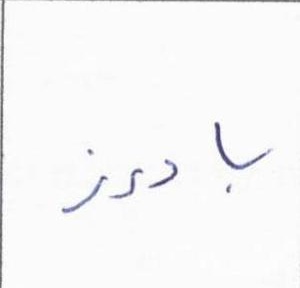 بادرز